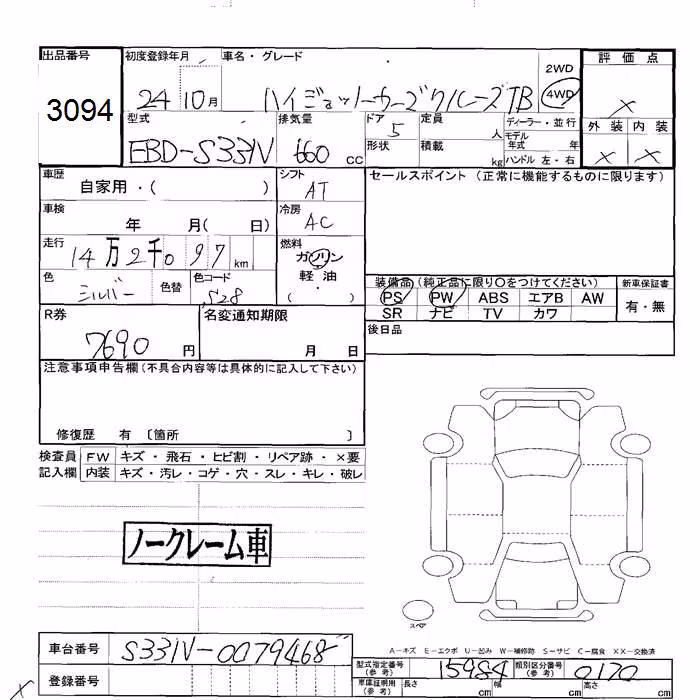 出品番号 初度登録年月 車名・グレード 評価点
3094 24 10月 ハイジェットカーゴクルーズTB 2WD 4WD ×
外装 内装
× ×
型式 排気量 ドア 定員 ディーラー・並行
EBD-S331V 660 cc 5 人 モデル年式 年
形状 積載 kg ハンドル 左・右
車歴 シフト セールスポイント (正常に機能するものに限ります)
自家用・( ) AT
車検 冷房
年 月( 日) AC
走行 燃料
14万2千097km ガソリン
軽油
( ・ )
色 色替 色コード
シルバー S28
装備品 (純正品に限り○をつけてください) 新車保証書
PS PW ABS エアB AW 有・無
SR ナビ TV カワ
R券 名変通知期限 後日品
7690 円 月 日
注意事項申告欄(不具合内容等は具体的に記入して下さい)
修復歴 有 〔箇所 〕
検査員 FW キズ・飛石・ヒビ割・リペア跡・×要
記入欄 内装 キズ・汚レ・コゲ・穴・スレ・キレ・破レ
ノークレーム車
スペア
A-キズ E-エクボ U-凹み W-補修跡 S-サビ C-腐食 XX-交換済
車台番号 S331V-0079468
型式指定番号(参考) 15984 類別区分番号(参考) 0170
登録番号 車庫証明用(参考) 長さ cm 幅 cm 高さ cm
×